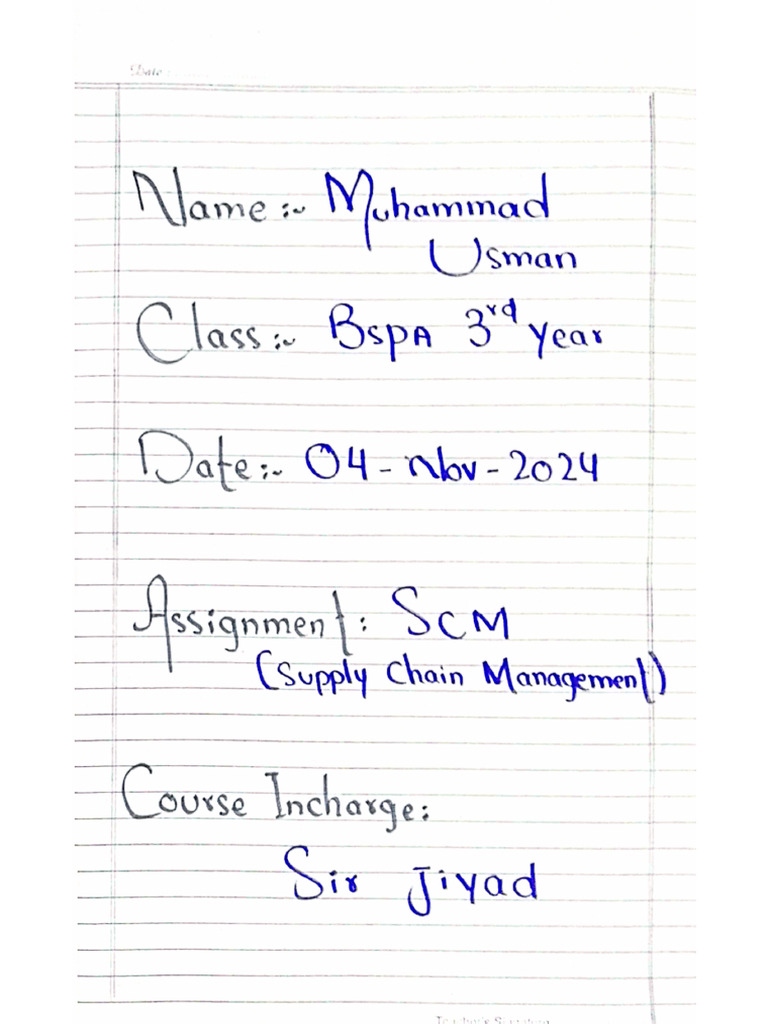 Date
Name:~ Muhammad
Usman
Class:~ BSPA 3rd Year
Date:~ 04-Nov-2024
Assignment: SCM
(Supply Chain Management)
Course Incharge:
Sir Jiyad